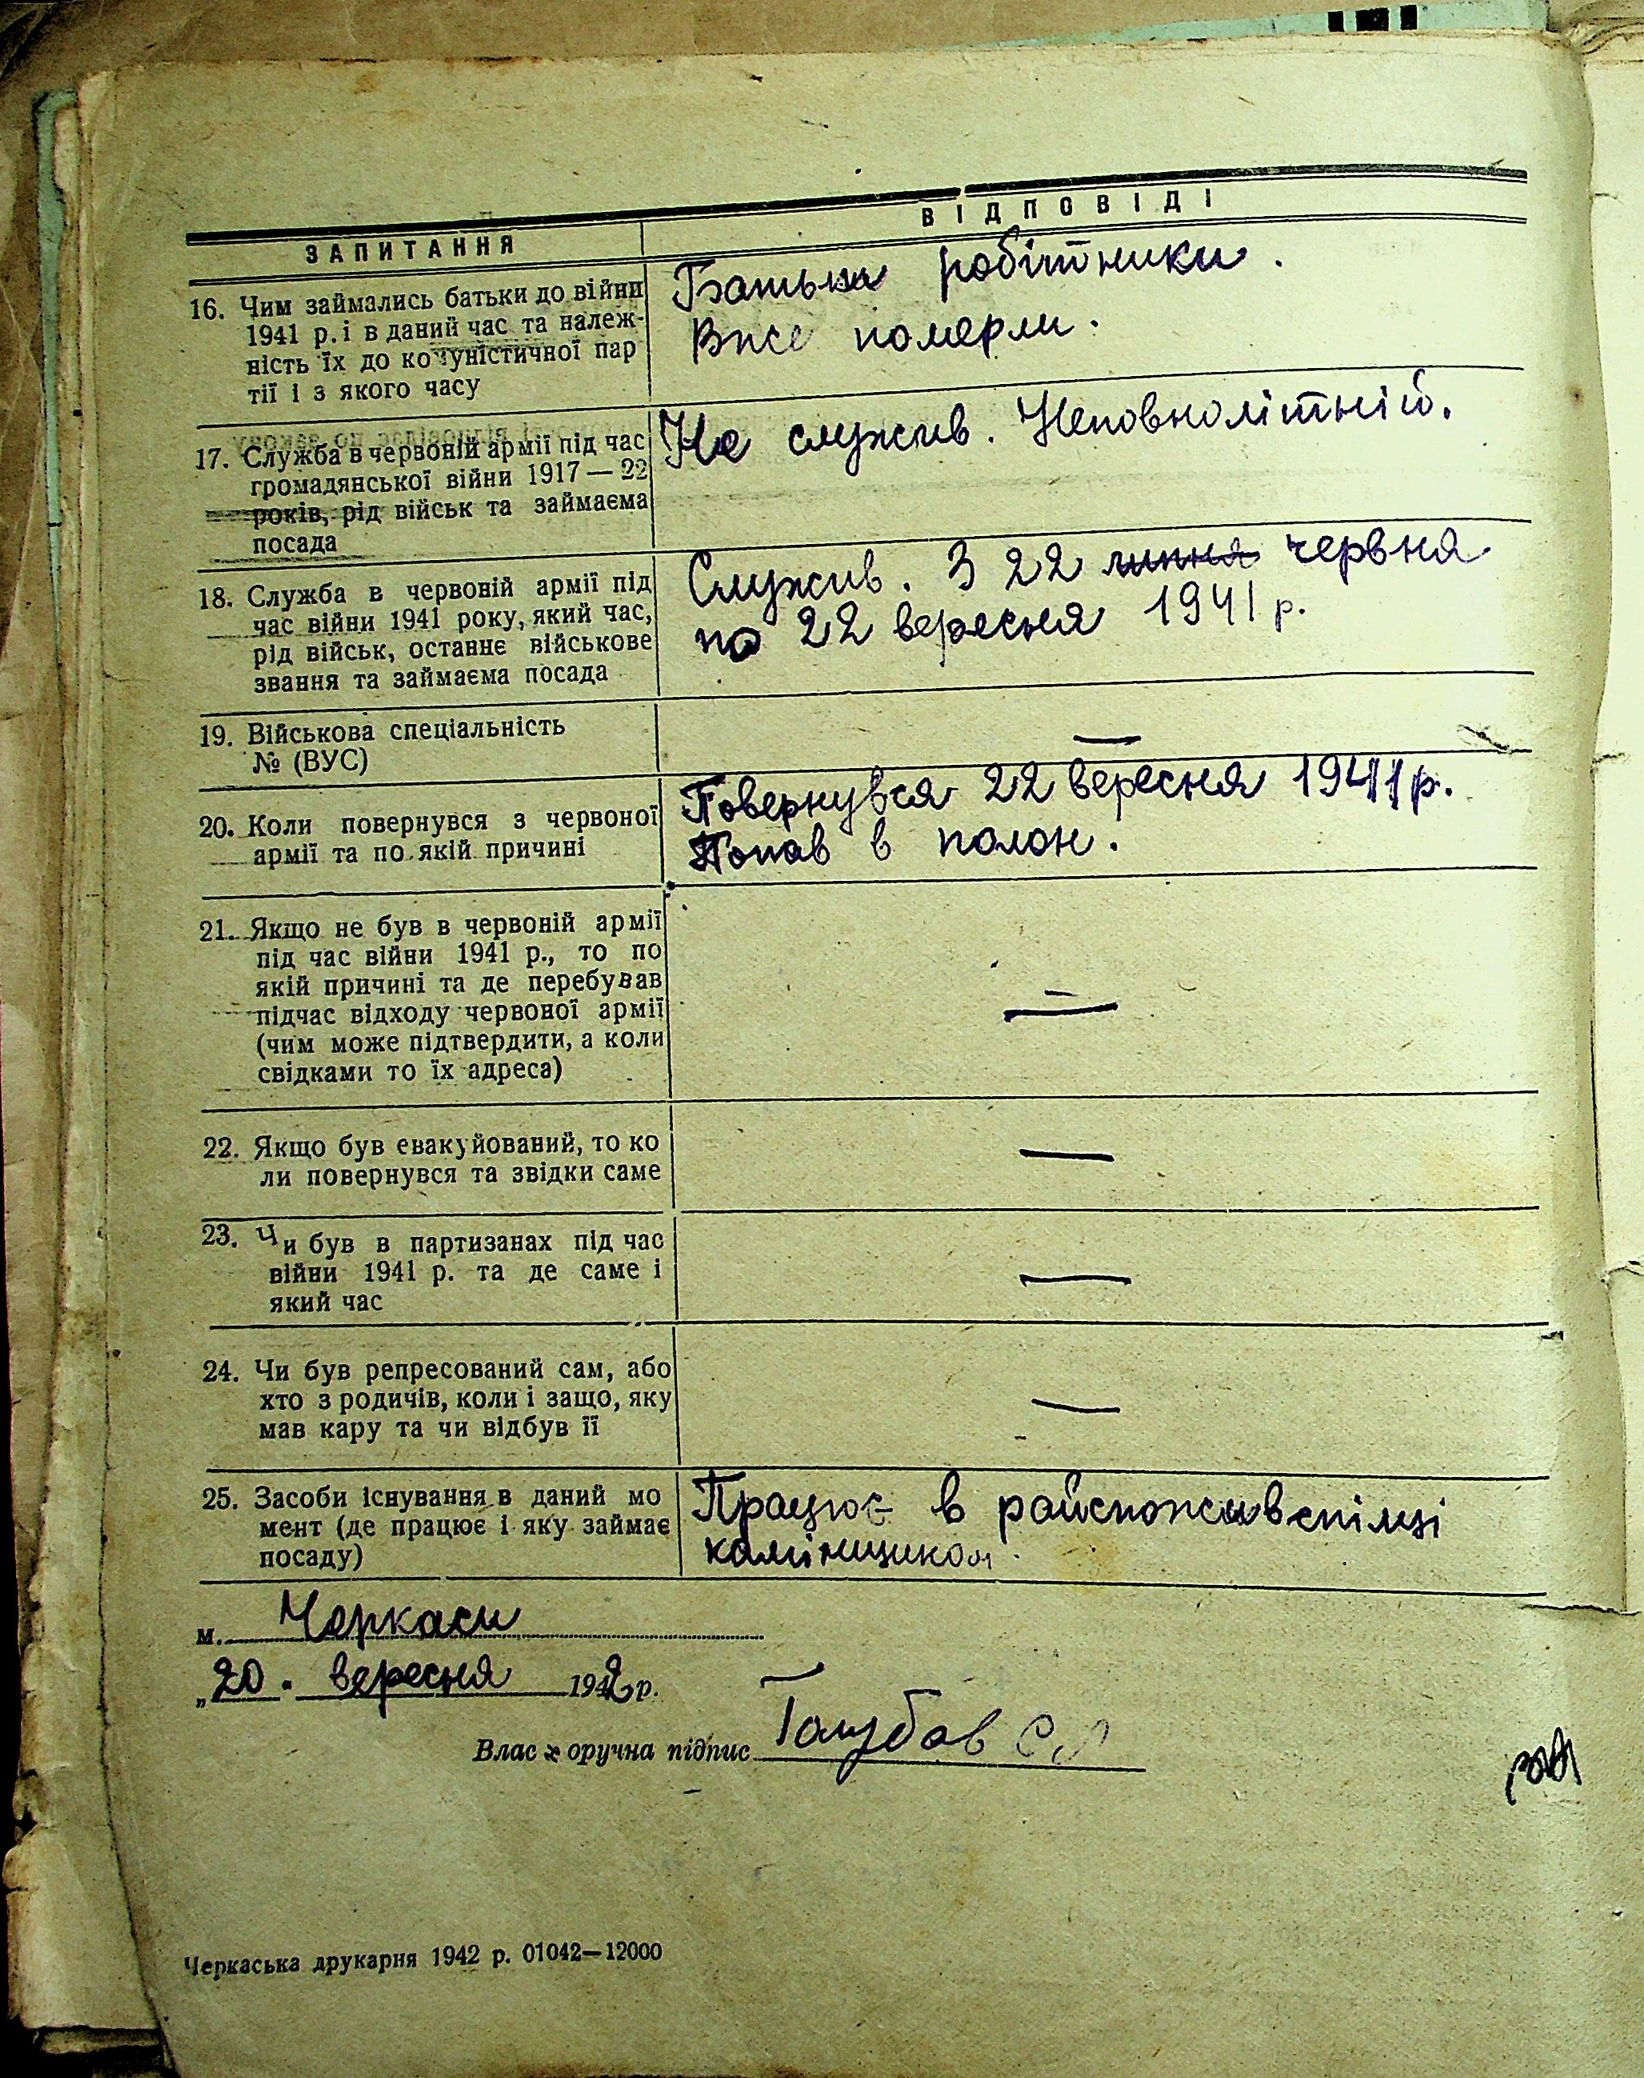 ЗАПИТАННЯ
ВІДПОВІДІ
16. Чим займались батьки до війни
1941 р. і в даний час та належ-
ність їх до комуністичної пар
тії і з якого часу
Батьки робітники.
Вже померли.
17. Служба в червоній армії під час
громадянської війни 1917—22
років, рід військ та займаєма
посада
Не служив. Неповнолітній.
18. Служба в червоній армії під
час війни 1941 року, який час,
рід військ, останнє військове
звання та займаєма посада
Служив. З 22 липня червня
по 22 вересня 1941 р.
19. Військова спеціальність
№ (ВУС)
—
20. Коли повернувся з червоної
армії та по якій причині
Повернувся 22 вересня 1941 р.
Попав в полон.
21. Якщо не був в червоній армії
під час війни 1941 р., то по
якій причині та де перебував
підчас відходу червоної армії
(чим може підтвердити, а коли
свідками то їх адреса)
—
22. Якщо був евакуйований, то ко
ли повернувся та звідки саме
—
23. Чи був в партизанах під час
війни 1941 р. та де саме і
який час
—
24. Чи був репресований сам, або
хто з родичів, коли і защо, яку
мав кару та чи відбув її
—
25. Засоби існування в даний мо
мент (де працює і яку займає
посаду)
Працює в райспоживспілці
камінщиком.
м. Черкаси
„20. вересня 1942 р.
Власноручна підпис Голубов С
Черкаська друкарня 1942 р. 01042—12000